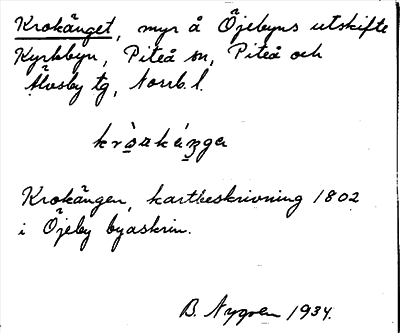 Krokänget, myr å Öjebyns utskifte
Kyrkbyn, Piteå sn, Piteå och
Älvsby tg, Norrb. l.
Krokängen, kartbeskrivning 1802
i Öjeby byaskrin.
B. Nygren 1934.